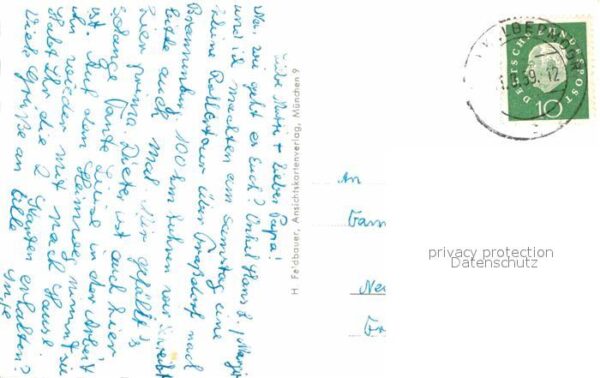 Liebe Mutti + lieber Papa!
Na, wie geht es Euch? Onkel Hans
und ich machten am Samstag eine
kleine Rollertour über nach
100 km fuhren wir. Schreibt
bitte auch mal. Mir gefällt's
hier prima. Dieter ist auch hier
solange Tante Luise in der Arbeit
ist. Auf dem Heimweg nimmt sie
ihn wieder mit nach Hause.
Habt Ihr die 2 Karten erhalten?
Viele Grüße an alle
H. Feldbauer, Ansichtskartenverlag, München 9
An
Fam
DEUTSCHE BUNDESPOST
10
59. 12
privacy protection
Datenschutz